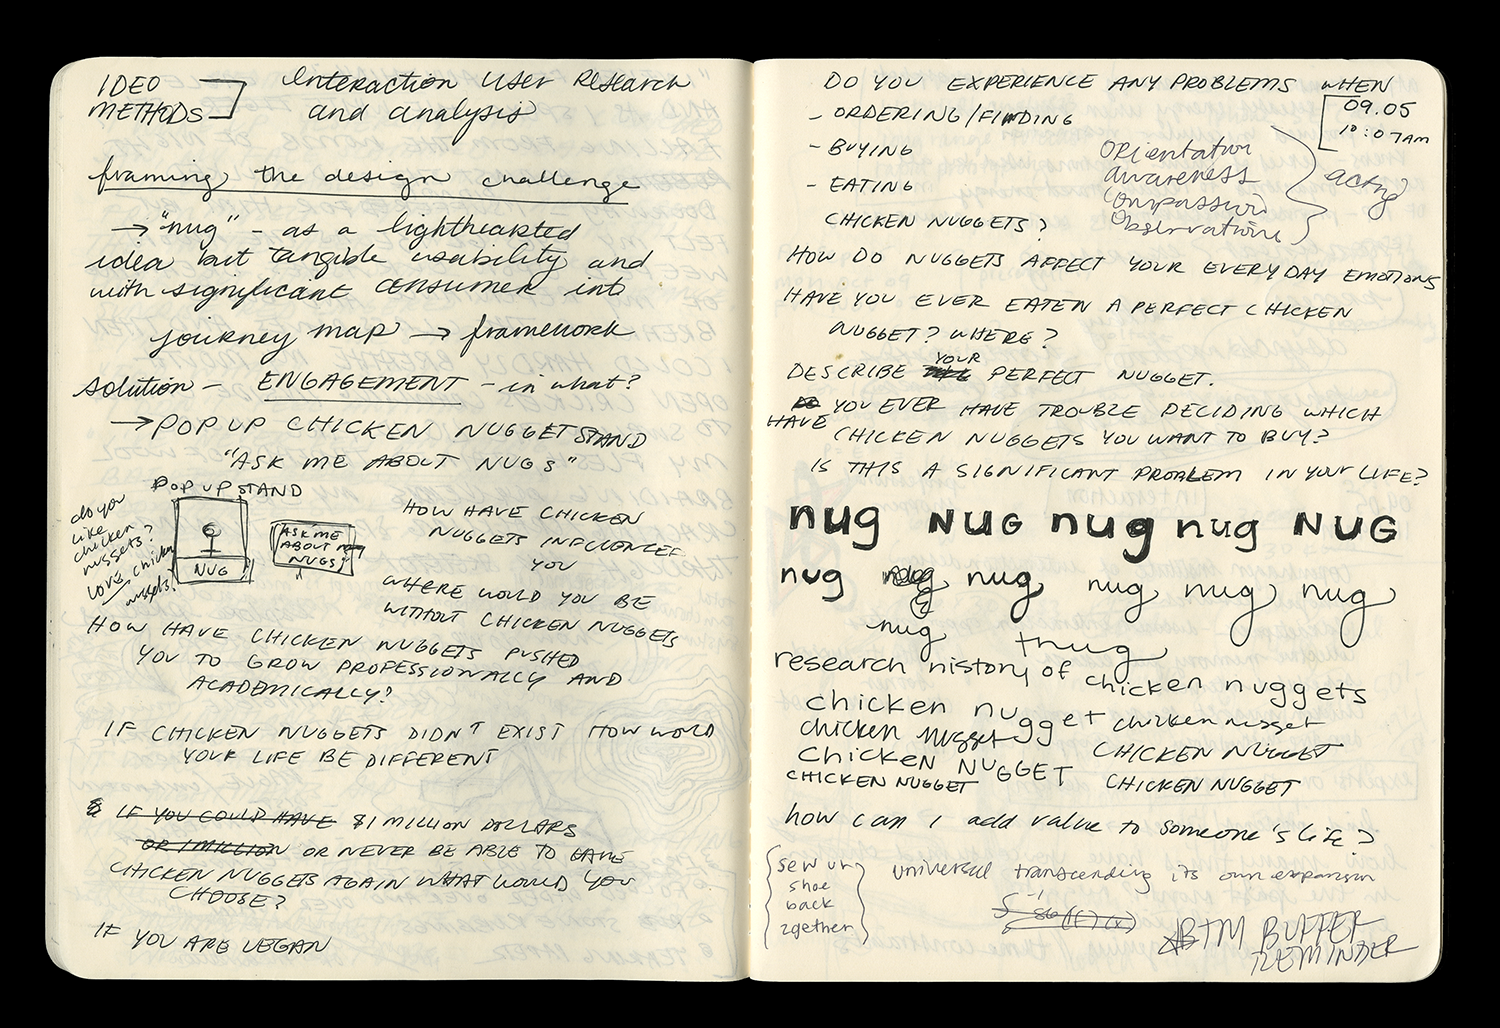 IDEO
METHODS
Interaction User Research
and analysis
framing the design challenge
→ "nug" - as a lighthearted
idea but tangible usability and
with significant consumer int.
journey map → framework
solution - ENGAGEMENT - in what?
→ POP UP CHICKEN NUGGET STAND
"ASK ME ABOUT NUGS"
POP UP STAND
do you
like
chicken
nuggets?
love chicken
nuggets?
NUG
ASK ME
ABOUT my
NUGS!
HOW HAVE CHICKEN
NUGGETS INFLUENCED
YOU
WHERE WOULD YOU BE
WITHOUT CHICKEN NUGGETS
HOW HAVE CHICKEN NUGGETS PUSHED
YOU TO GROW PROFESSIONALLY AND
ACADEMICALLY?
IF CHICKEN NUGGETS DIDN'T EXIST HOW WOULD
YOUR LIFE BE DIFFERENT
IF YOU COULD HAVE $1 MILLION DOLLARS
OR 1 MILLION OR NEVER BE ABLE TO HAVE
CHICKEN NUGGETS AGAIN WHAT WOULD YOU
CHOOSE?
IF YOU ARE VEGAN
DO YOU EXPERIENCE ANY PROBLEMS WHEN
09.05
10:07AM
- ORDERING/FINDING
- BUYING
- EATING
CHICKEN NUGGETS?
orientation
awareness
compassion
observations
acting
HOW DO NUGGETS AFFECT YOUR EVERYDAY EMOTIONS
HAVE YOU EVER EATEN A PERFECT CHICKEN
NUGGET? WHERE?
DESCRIBE YOUR PERFECT NUGGET.
HAVE YOU EVER HAVE TROUBLE DECIDING WHICH
CHICKEN NUGGETS YOU WANT TO BUY?
IS THIS A SIGNIFICANT PROBLEM IN YOUR LIFE?
nug NUG nug nug NUG
nug nug nug nug nug nug
nug thug
research history of chicken nuggets
chicken nugget chicken nugget
chicken nugget
CHICKEN NUGGET CHICKEN NUGGET
CHICKEN NUGGET CHICKEN NUGGET
how can I add value to someone's life?
sew ur
shoe
back
2gether
universal transcending its own expansion
BTM BUFFER
REMINDER